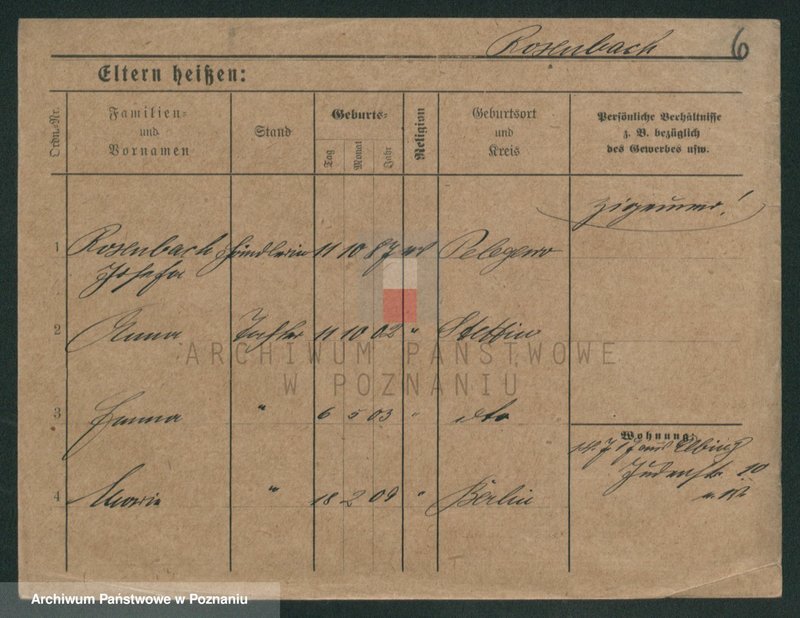 Rosenbach 6
Eltern heißen:
Ordn.-Nr.
Familien-
und
Vornamen
Stand
Geburts-
Tag
Monat
Jahr
Religion
Geburtsort
und
Kreis
Persönliche Verhältnisse
z. B. bezüglich
des Gewerbes usw.
Zigeuner!
1 Rosenbach Händlerin 11 10 87
Josefa
2 Anna Tochter 11 10 02 " Stettin
ARCHIWUM PAŃSTWOWE
W POZNANIU
3 " 6 5 03 " dto
Wohnung:
Elbing
Judenstr. 10
4 Maria " 18 2 09 " Berlin
Archiwum Państwowe w Poznaniu